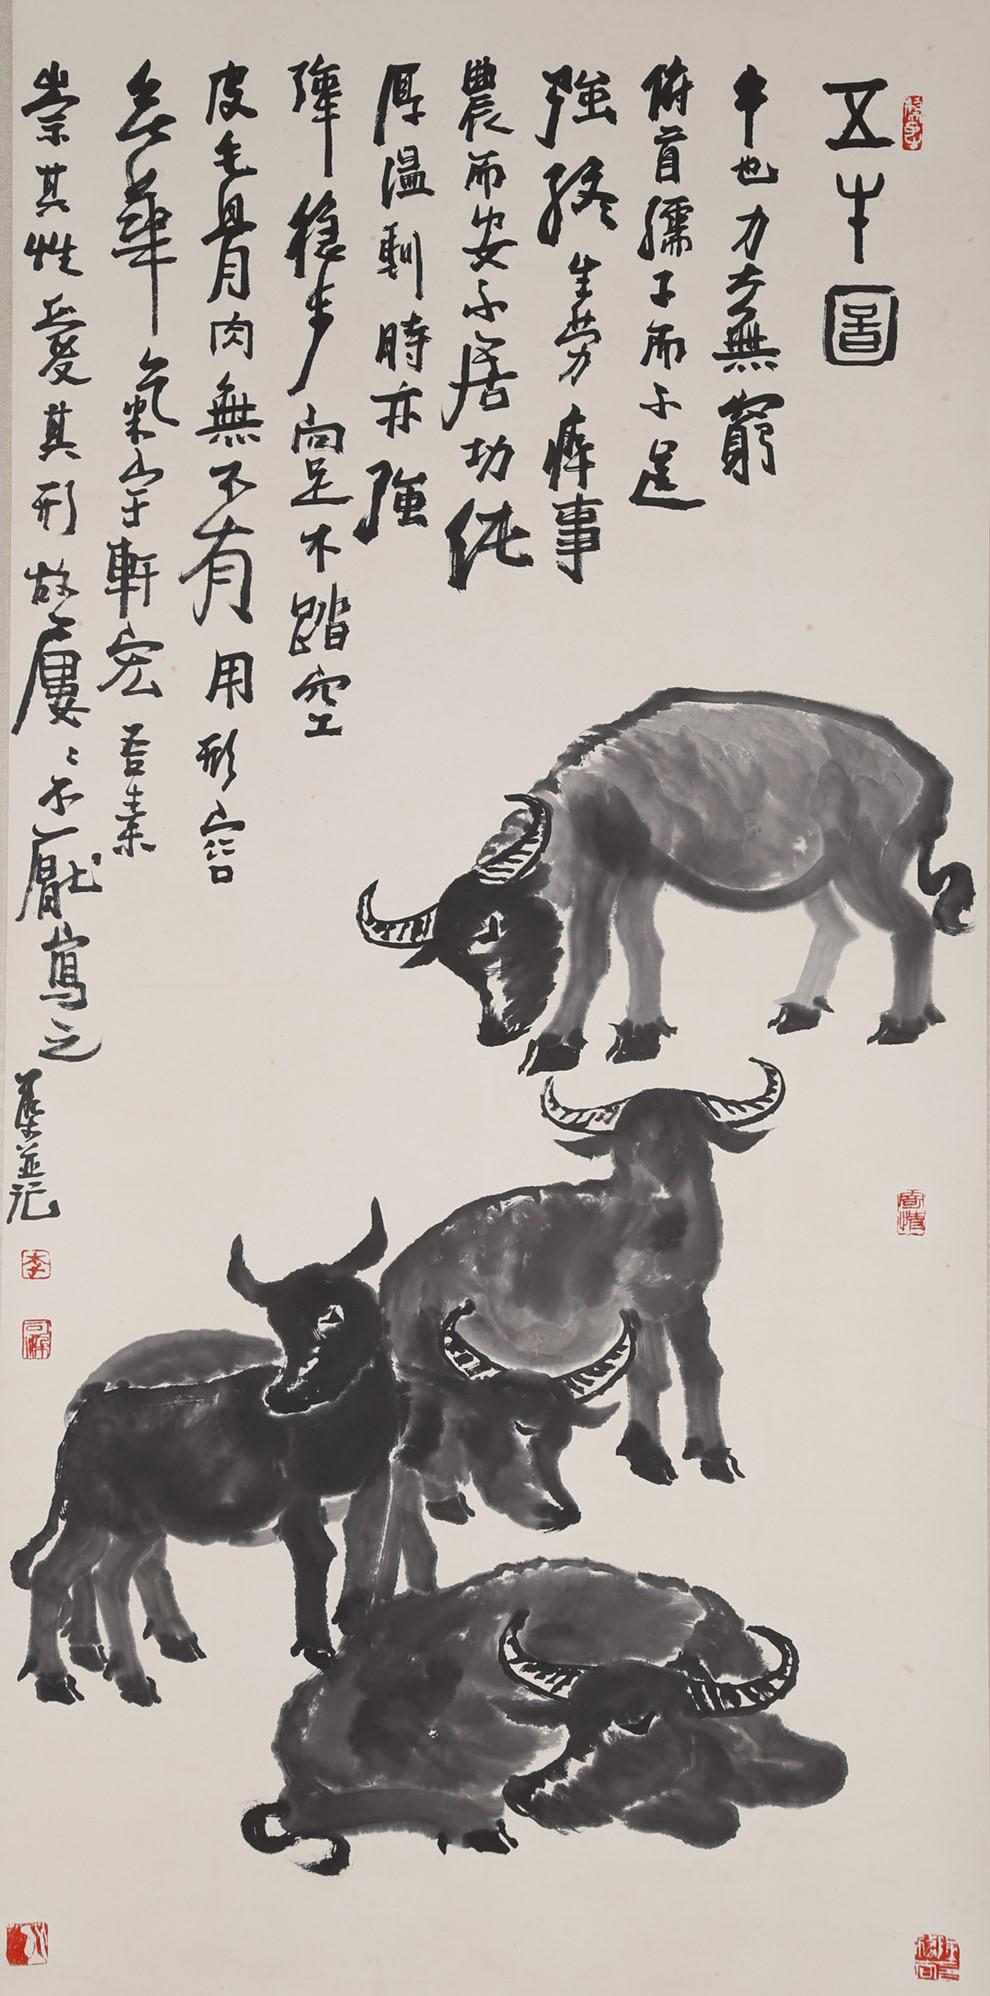 五牛圖
牛也力大無窮
俯首孺子而不逞
強終生勞瘁事
農而安不居功純
厚溫馴時亦強
犟穩步向足不踏空
皮毛骨肉無不有用形容
無華氣宇軒宏吾素
崇其性愛其形故屢々不厭寫之
可染並記
李
可染